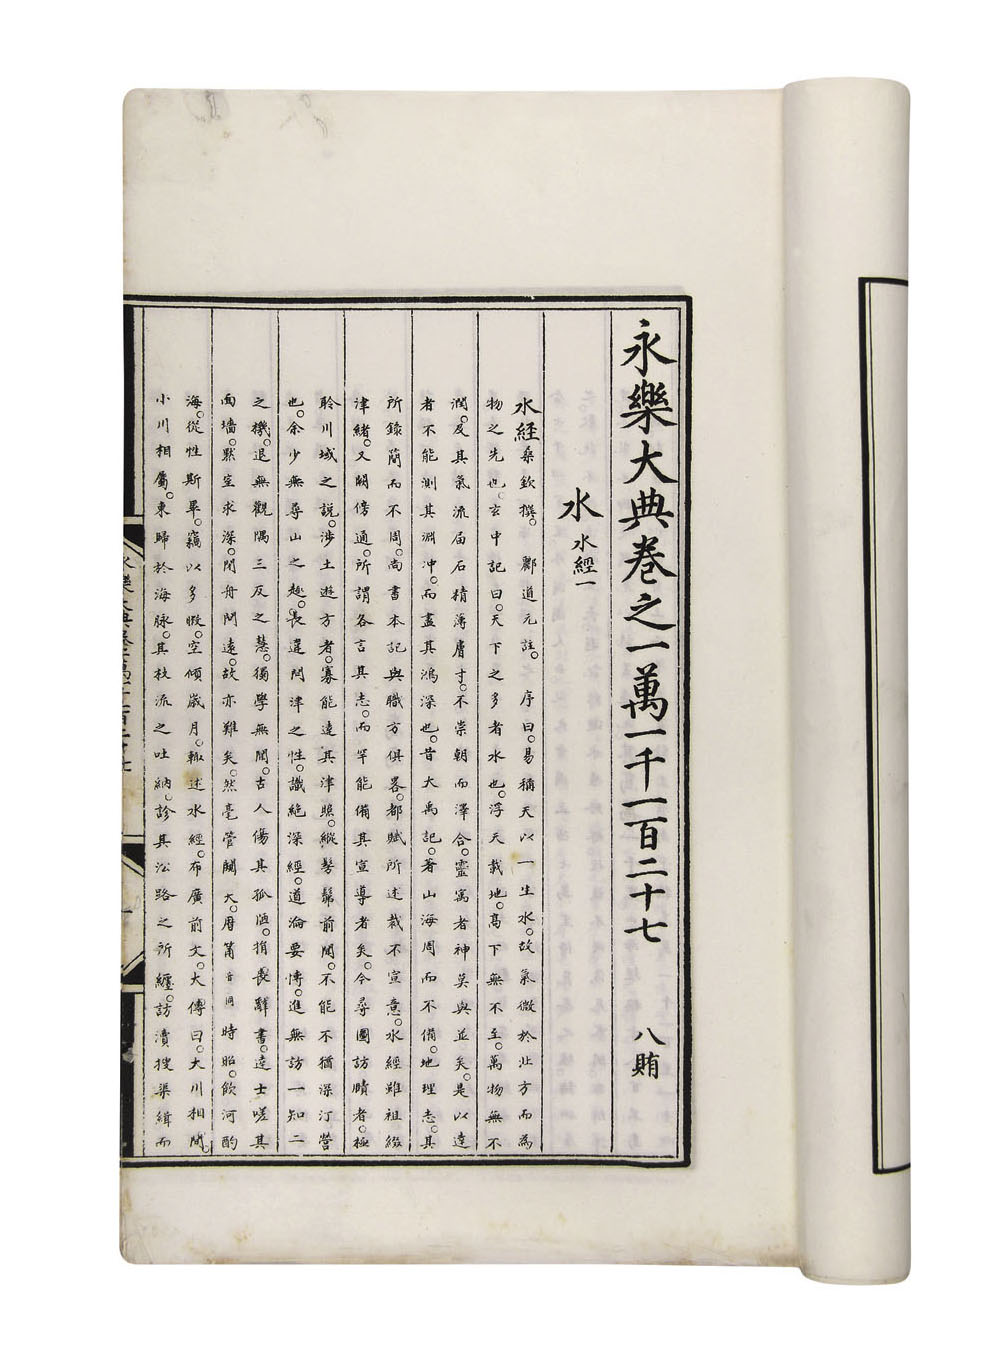 永樂大典卷之一萬一千一百二十七 八賄
水 水經一
水經桑欽撰。酈道元註。序曰。易稱天以一生水。故氣微於北方而為
物之先也。玄中記曰。天下之多者水也。浮天載地。高下無不至。萬物無不
潤。及其氣流屆石。精薄膚寸。不崇朝而澤合。靈寓者神莫與並矣。是以達
者不能測其淵沖。而盡其鴻深也。昔大禹記。著山海周而不備。地理志。其
所錄簡而不周。尚書本記與職方俱畧。都賦所述裁不宣意。水經雖祖綴
津緒。又闕傍通。所謂各言其志。而罕能備其宣導者矣。今尋圖訪賾者。極
聆川域之說。涉土遊方者。寡能達其津照。縱髣髴前聞。不能不猶深汀營
也。余少無尋山之趣。長違問津之性。識絕深經。道淪要博。進無訪一知二
之機。退無觀隅三反之慧。獨學無聞。古人傷其孤陋。捐喪辭書。達士嗟其
面墻。默室求深。閉舟問遠。故亦難矣。然毫管闚天。曆筩音同時昭。飲河酌
海。從性斯畢。竊以多暇。空傾歲月。輒述水經。布廣前文。大傳曰。大川相間。
小川相屬。東歸於海。脉其枝流之吐納。診其沿路之所纏。訪瀆搜渠。緝而